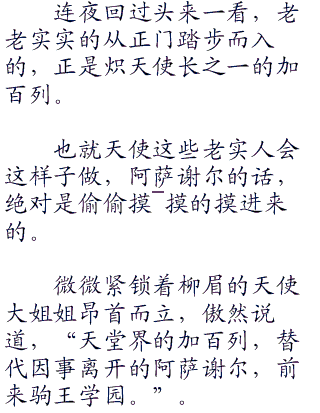 连夜回过头来一看，老
老实实的从正门踏步而入
的，正是炽天使长之一的加
百列。
也就天使这些老实人会
这样子做，阿萨谢尔的话，
绝对是偷偷摸¯摸的摸进来
的。
微微紧锁着柳眉的天使
大姐姐昂首而立，傲然说
道，“天堂界的加百列，替
代因事离开的阿萨谢尔，前
来驹王学园。”。